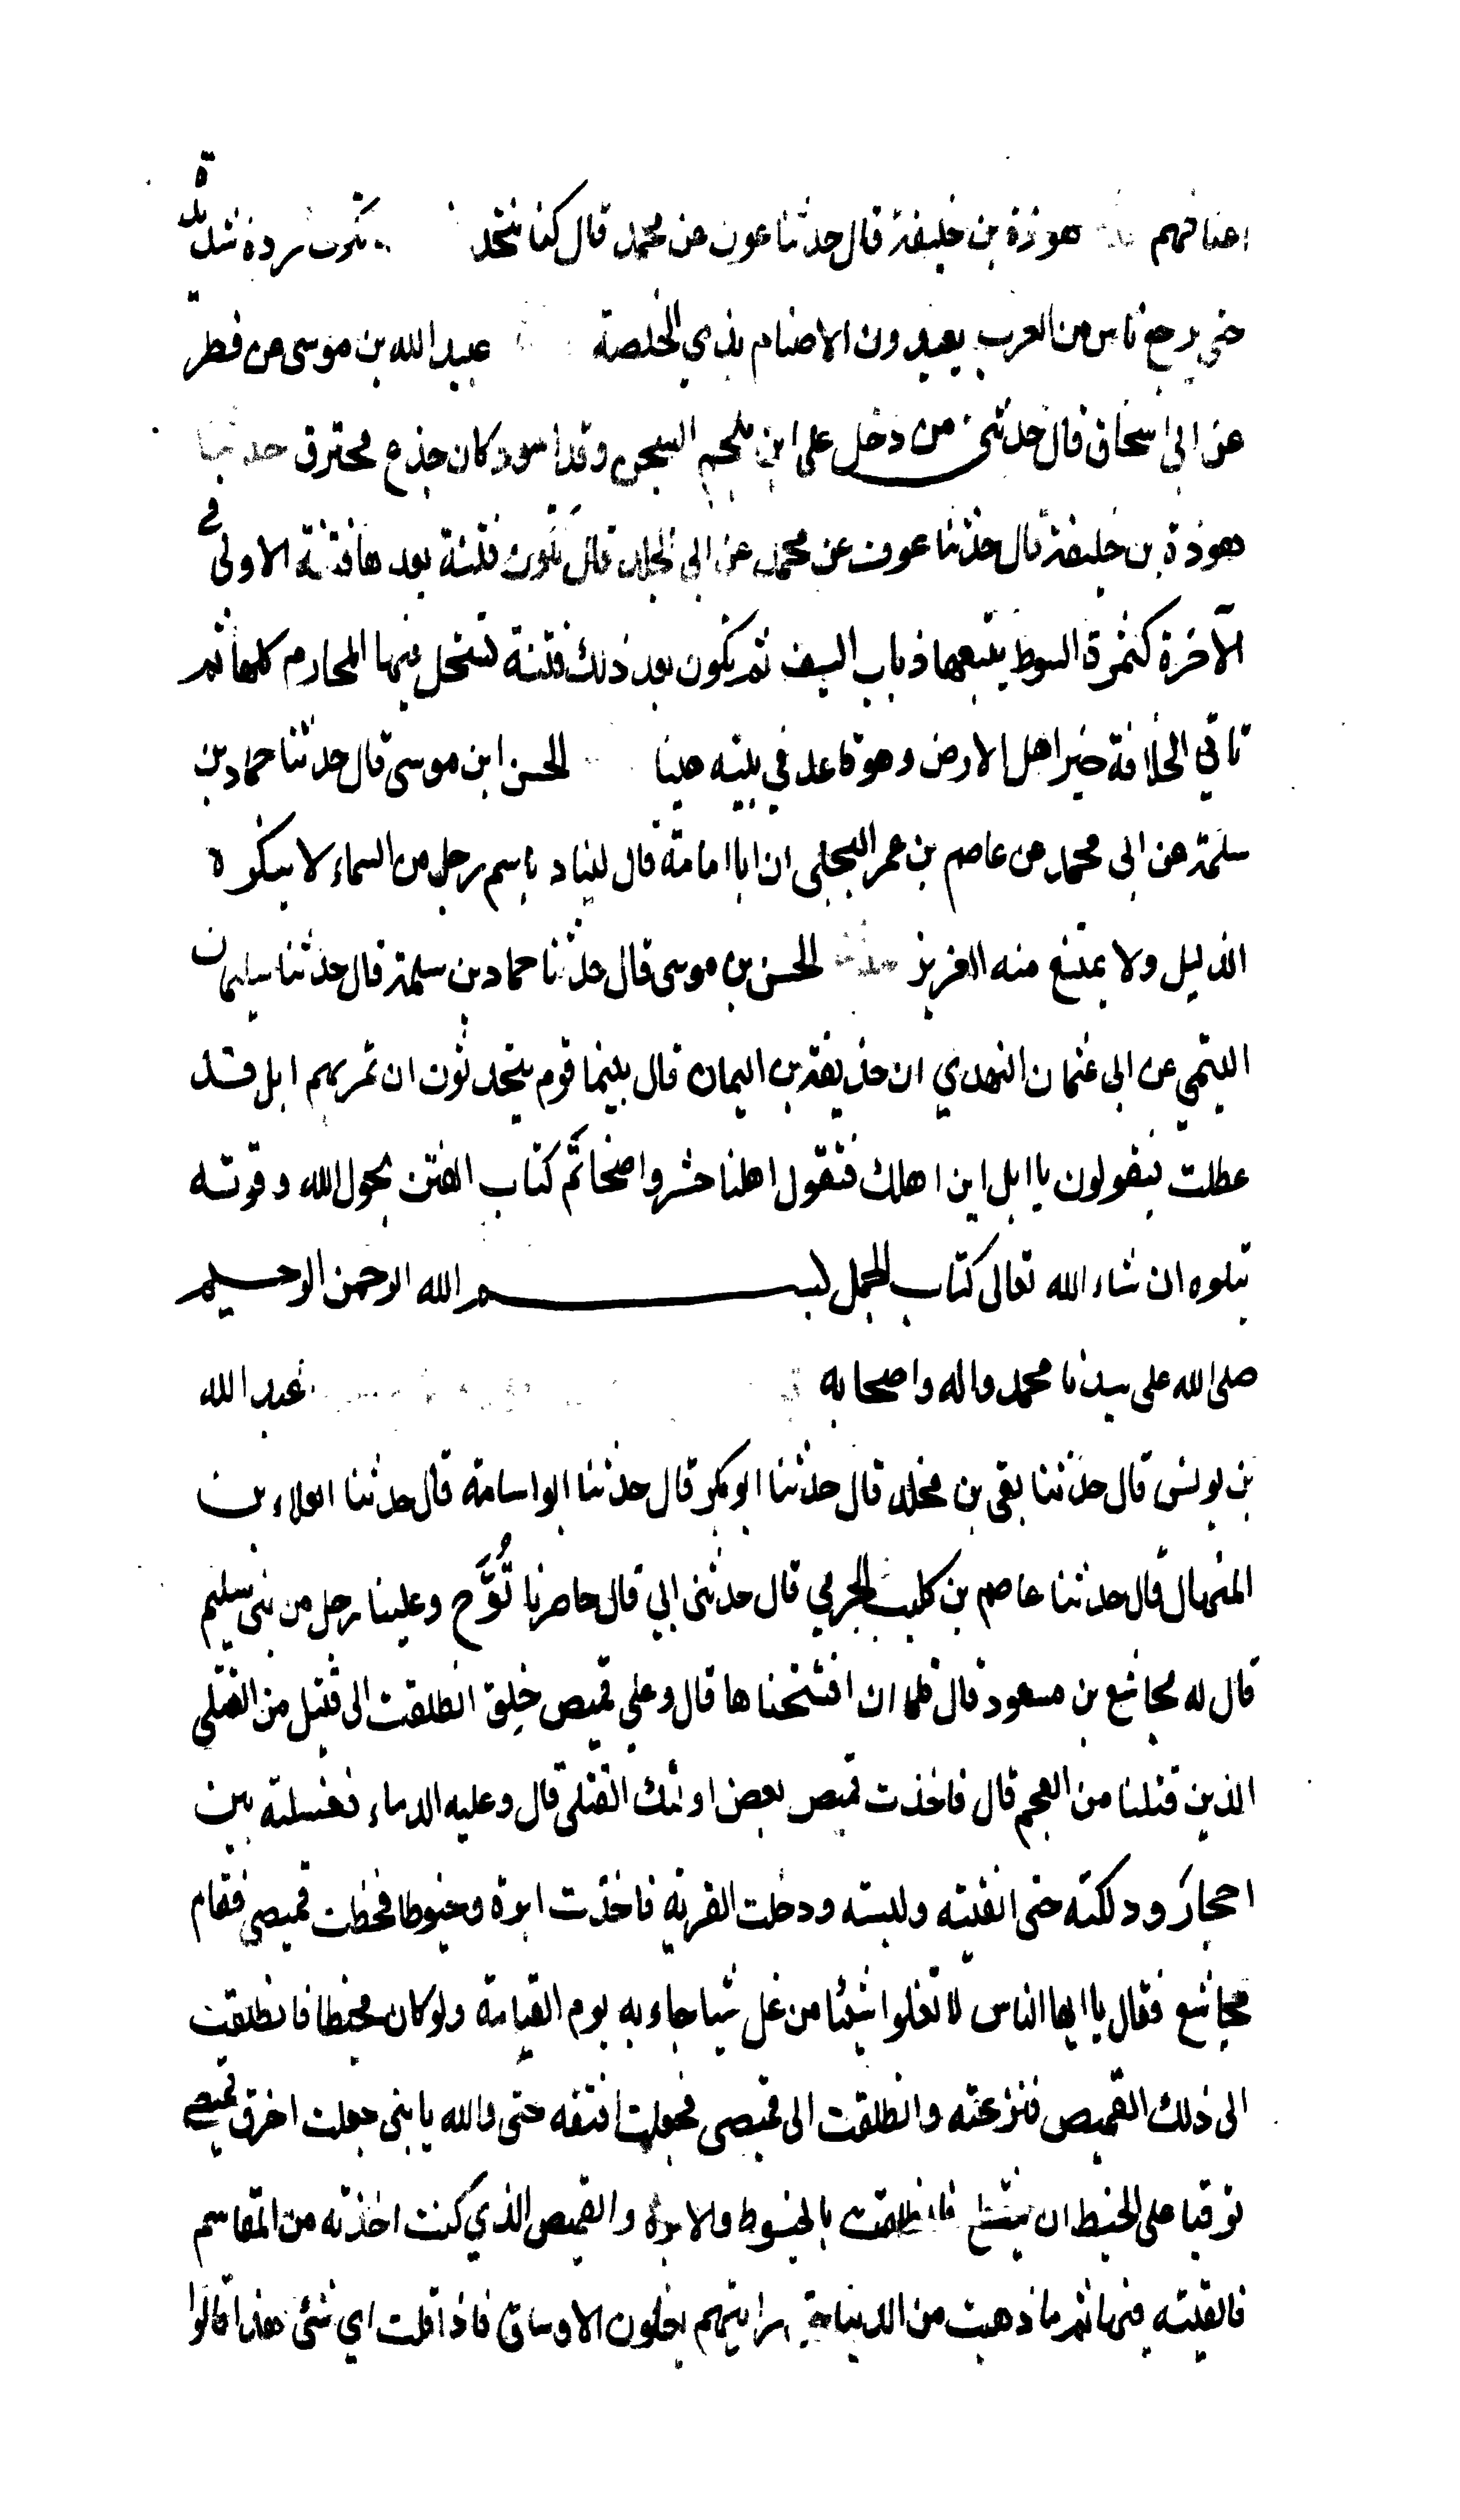 اعناقهم هوذة بن خليفة قال حدثنا عون عن محمد قال كنا نتحدث تكون ردة شديدة
حتى يرجع ناس من العرب يعبدون الاصنام بذي الخلصة عبيد الله بن موسى عن فطر
عن ابى اسحاق قال حدثني من دخل على ابن ملجم السجن وقد اسود كان جذع محترق حدثنا
هوذة بن خليفة قال حدثنا عوف عن محمد عن ابي الجلد قال تكون فتنة بعدها فتنة الاولى في
الآخرة كثمرة السوط يتبعها ذباب السيف ثم تكون بعد ذلك فتنة تستحل فيها المحارم كلها ثم
تاتي الخلافة خير اهل الارض وهو قاعد في بيته هينا الحسن ابن موسى قال حدثنا حماد بن
سلمة عن ابى محمد عن عاصم بن عمر البجلي ان ابا امامة قال لينادِ باسم رجل من السماء لا ينكره
الذليل ولا يمتنع منه العزيز حدثنا الحسن بن موسى قال حدثنا حماد بن سلمة قال حدثنا سليمان
التيمي عن ابى عثمان النهدي ان حذيفة بن اليمان قال بينما قوم يتحدثون ان تمر بهم ابل قد
عطلت فيقولون يا ابل اين اهلك فتقول اهلنا حشروا ضحا تم كتاب الفتن بحول الله وقوته
يتلوه ان شاء الله تعالى كتاب الجمل بسم الله الرحمن الرحيم
صلى الله على سيدنا محمد واله واصحابه عبد الله
بن يونس قال حدثنا بقى بن مخلد قال حدثنا ابو بكر قال حدثنا ابو اسامة قال حدثنا العلاء بن
المنهال قال حدثنا عاصم بن كليب الجرمي قال حدثنى ابي قال حاصرنا تُوَّج وعلينا رجل من بنى سليم
قال له مجاشع بن مسعود قال فلما ان افتتحناها قال وعلي قميص خلِق انطلقت الى قتيل من القتلى
الذين قتلنا من العجم قال فاخذت قميص بعض اولئك القتلى قال وعليه الدماء فغسلته بين
احجار ودلكته حتى انقيته ولبسته ودخلت القرية فاخذت ابرة وخيوطا فخطت قميصي فقام
مجاشع فقال يا ايها الناس لا تغلوا شيئا من غل شيا جاء به يوم القيامة ولو كان مخيطا فانطلقت
الى ذلك القميص فنزعته وانطلقت الى قميصى فجعلت افتقه حتى والله يا بنى جعلت اخرق قميصي
توقيا على الخيط ان ينقطع فانطلقت بالخيوط والابرة والقميص الذي كنت اخذته من المقاسم
فالقيته فيها ثم ما ذهبت من الدنيا حتى رايتهم يغلون الاوساق فاذا قلت اي شئ هذا قالوا